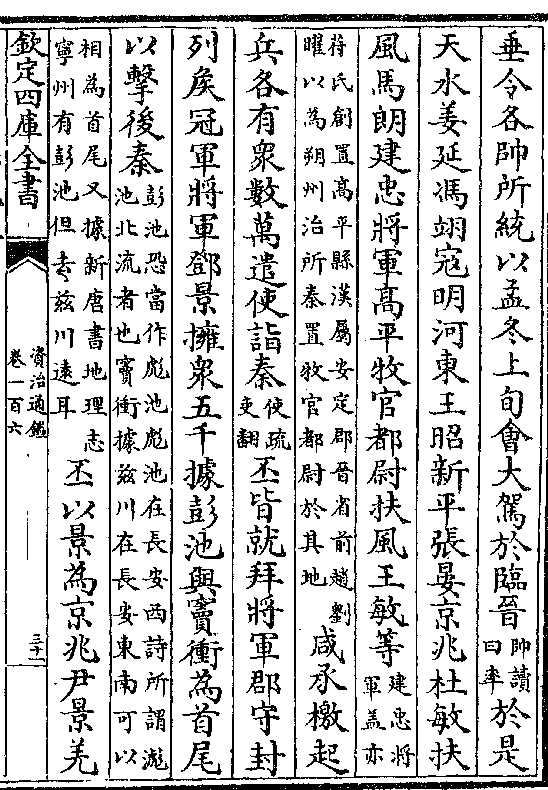 垂令各帥所統以孟冬上旬會大駕於臨晉帥讀曰率於是
天水姜延馮翊寇明河東王昭新平張晏京兆杜敏扶
風馬朗建忠將軍高平牧官都尉扶風王敏等建忠將軍盖亦
苻氏創置高平縣漢屬安定郡晉省前趙劉曜以為朔州治所秦置牧官都尉於其地咸承檄起
兵各有衆數萬遣使詣秦使疏吏翻丕皆就拜將軍郡守封
列矦冠軍將軍鄧景擁衆五千據彭池與竇衝為首尾
以擊後秦彭池恐當作彪池彪池在長安西詩所謂滮池北流者也竇衝據茲川在長安東南可以
相為首尾又據新唐書地理志寧州有彭池但去茲川遠耳丕以景為京兆尹景羌
欽定四庫全書
資治通鑑
卷一百六
三十一